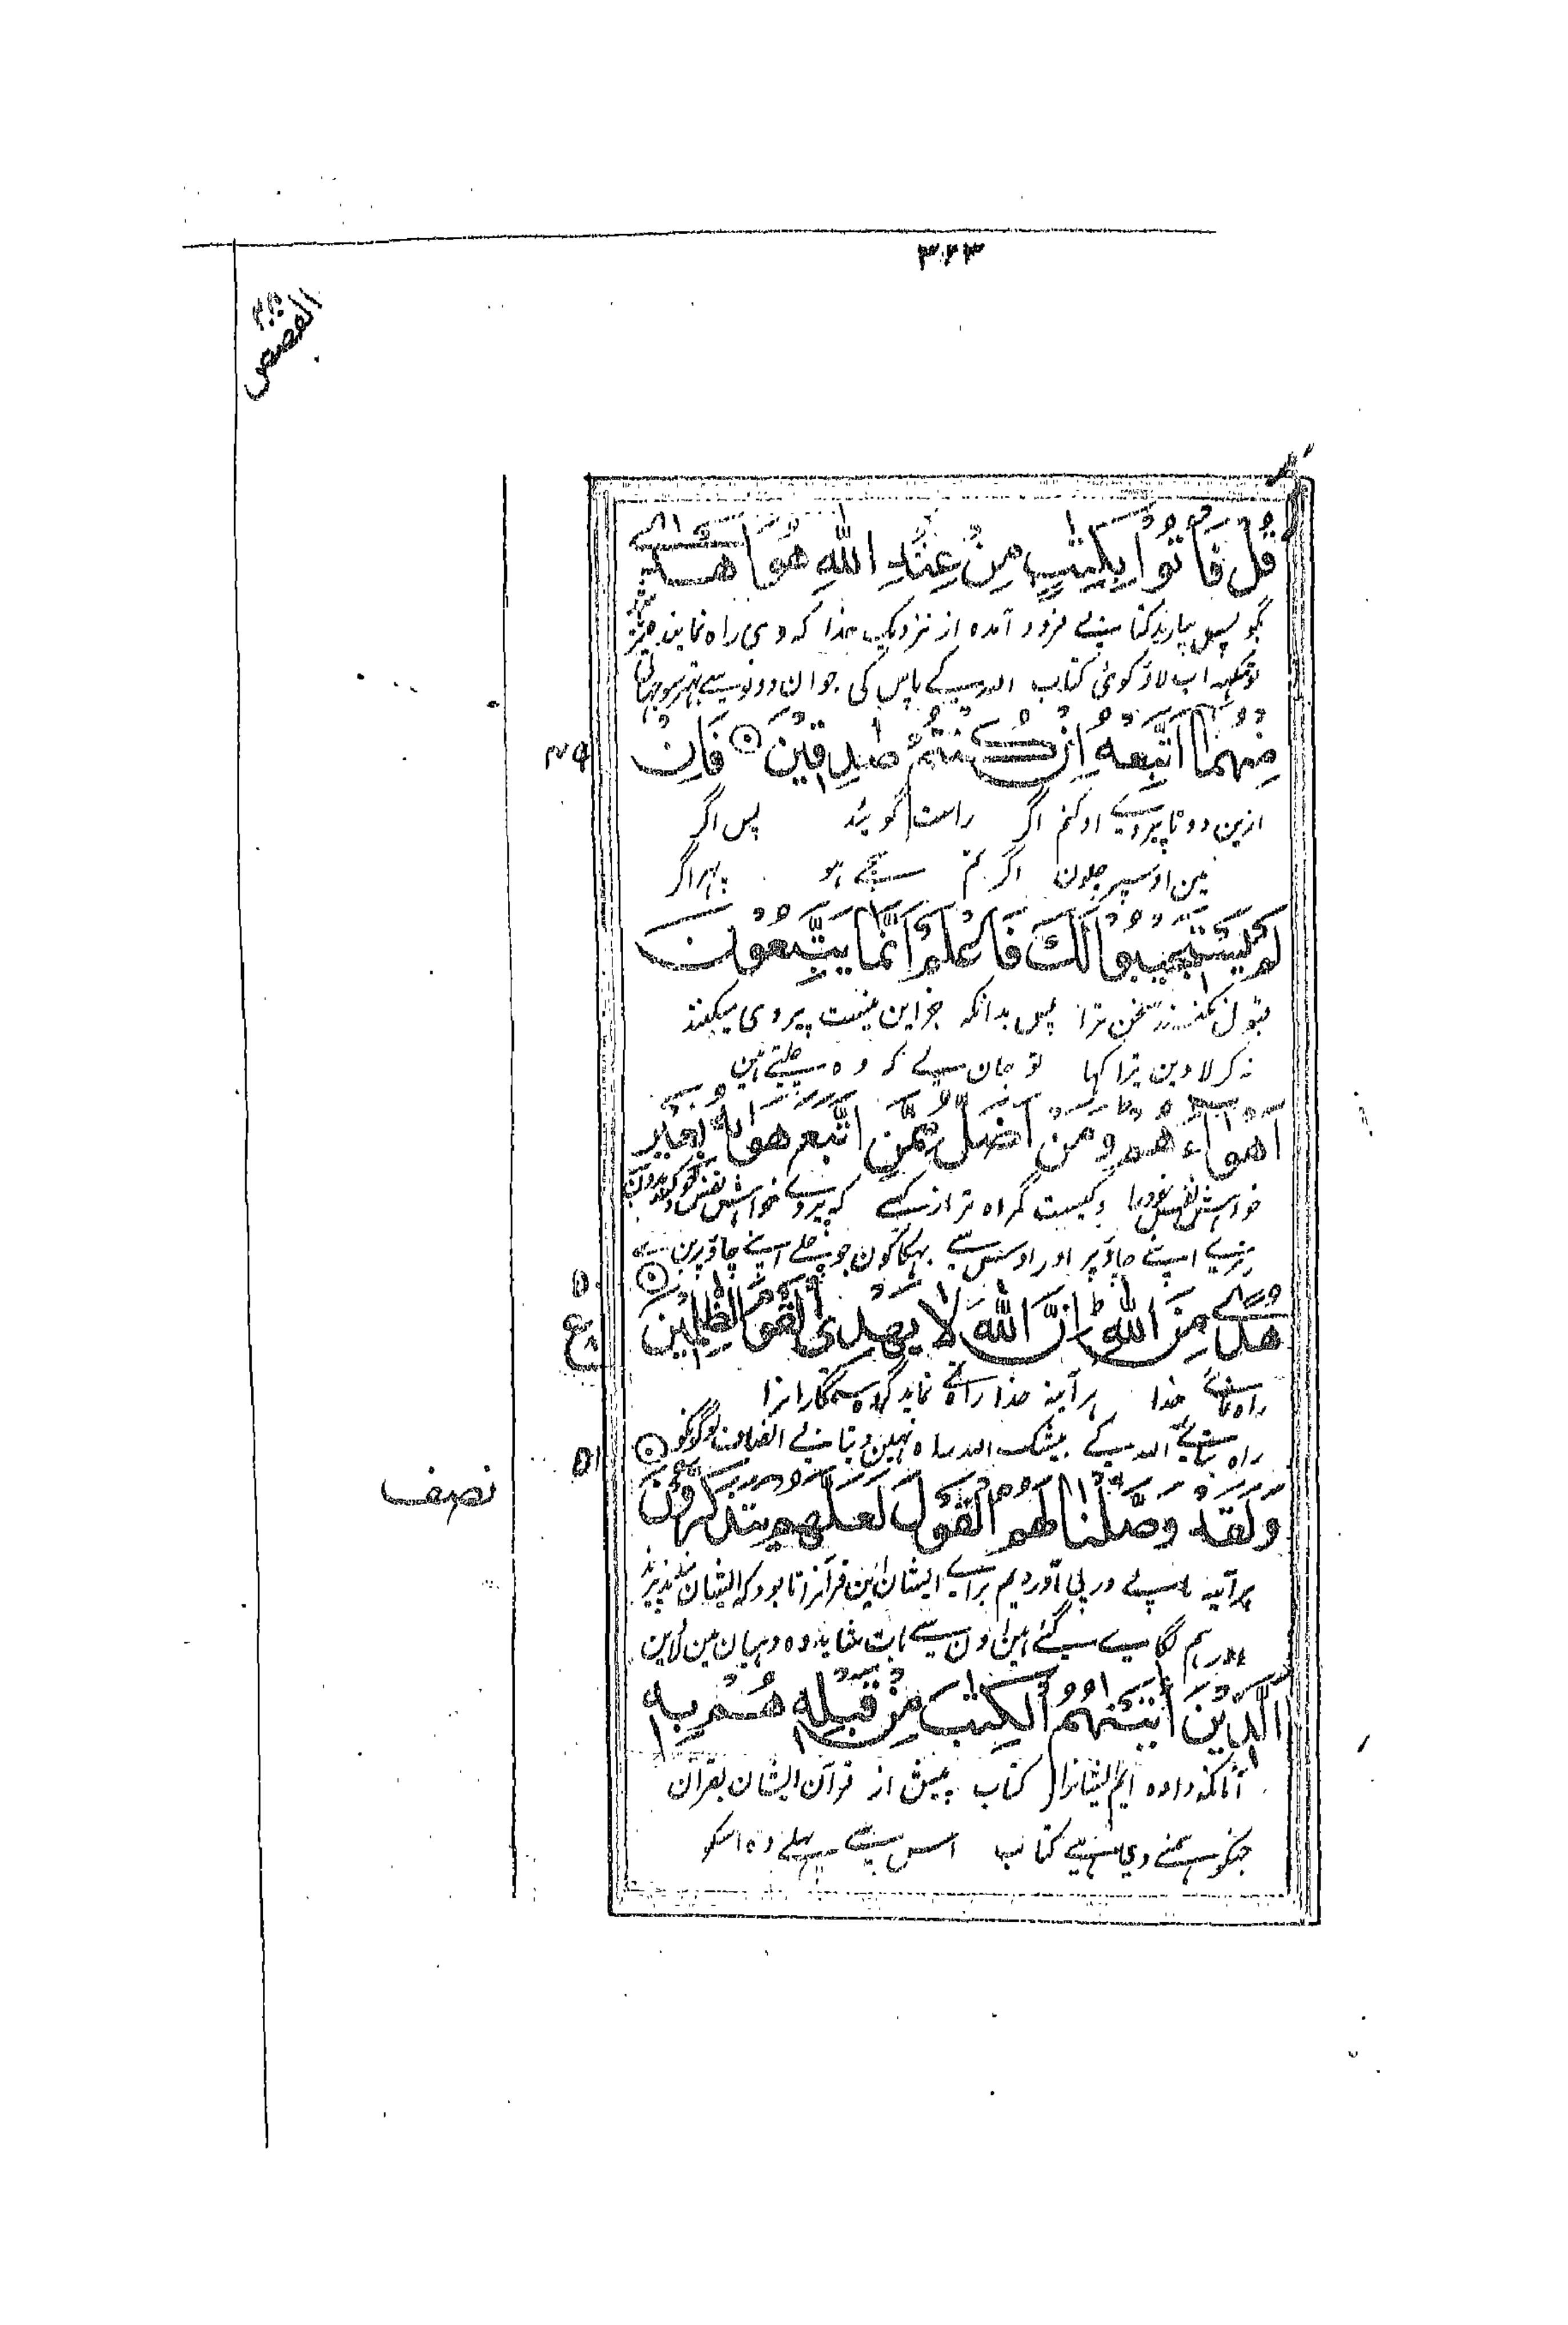 ۳۲۳
القصص
قُلْ فَأْتُوا بِكِتٰبٍ مِنْ عِنْدِ اللّٰهِ هُوَ اَهْدٰى
بگو پس بیارید کتابے فرود آمده از نزدیک خدا که وی راه نماینده تر
تو کہہ اب لاؤ کوئی کتاب اللہ کے پاس کی جو ان دونوں سے بہتر سوجہاتی
مِنْهُمَا اَتَّبِعْهُ اِنْ كُنْتُمْ صٰدِقِيْنَ ۝ فَاِنْ
۴۹
ازین دو تا پیروی او کنم اگر راست گویید پس اگر
مین اوسپر چلون اگر تم سچے ہو پہر اگر
لَمْ يَسْتَجِيْبُوْا لَكَ فَاعْلَمْ اَنَّمَا يَتَّبِعُوْنَ
قبول نکنند سخن ترا پس بدانکه جز این نیست پیروی میکنند
نہ کر لاوین تیرا کہا تو جان لے کہ وہ چلتے ہین
اَهْوَاۤءَهُمْ وَمَنْ اَضَلُّ مِمَّنِ اتَّبَعَ هَوٰىهُ بِغَيْرِ
خواهش نفس خود را و کیست گمراه تر از کسے که پیروی خواهش نفس خود کند بدون
نرے اپنے چاؤ پر اور اوس سے بہکا کون جو چلے اپنے چاؤ پر بن
هُدًى مِنَ اللّٰهِ ۭ اِنَّ اللّٰهَ لَا يَهْدِى الْقَوْمَ الظّٰلِمِيْنَ ۝
۵۰
ع
راه نمائے خدا هر آینه خدا راه نے نماید گروه ستمگاران را
راہ بتائے اللہ کے بیشک اللہ راہ نہین دیتا بے انصاف لوگونکو
وَلَقَدْ وَصَّلْنَا لَهُمُ الْقَوْلَ لَعَلَّهُمْ يَتَذَكَّرُوْنَ ۝
۵۱
نصف
هر آینه پے در پی آوردیم برای ایشان این قرآن را تا بود که ایشان پند پذیرند
اور ہم لگائے گئے ہین اون سے بات شاید وہ دہیان مین لاین
اَلَّذِيْنَ اٰتَيْنٰهُمُ الْكِتٰبَ مِنْ قَبْلِهٖ هُمْ بِهٖ
آنانکه داده ایم ایشانرا کتاب پیش از قرآن ایشان بقرآن
جنکو ہمنے دی ہے کتاب اس سے پہلے وہ اسکو